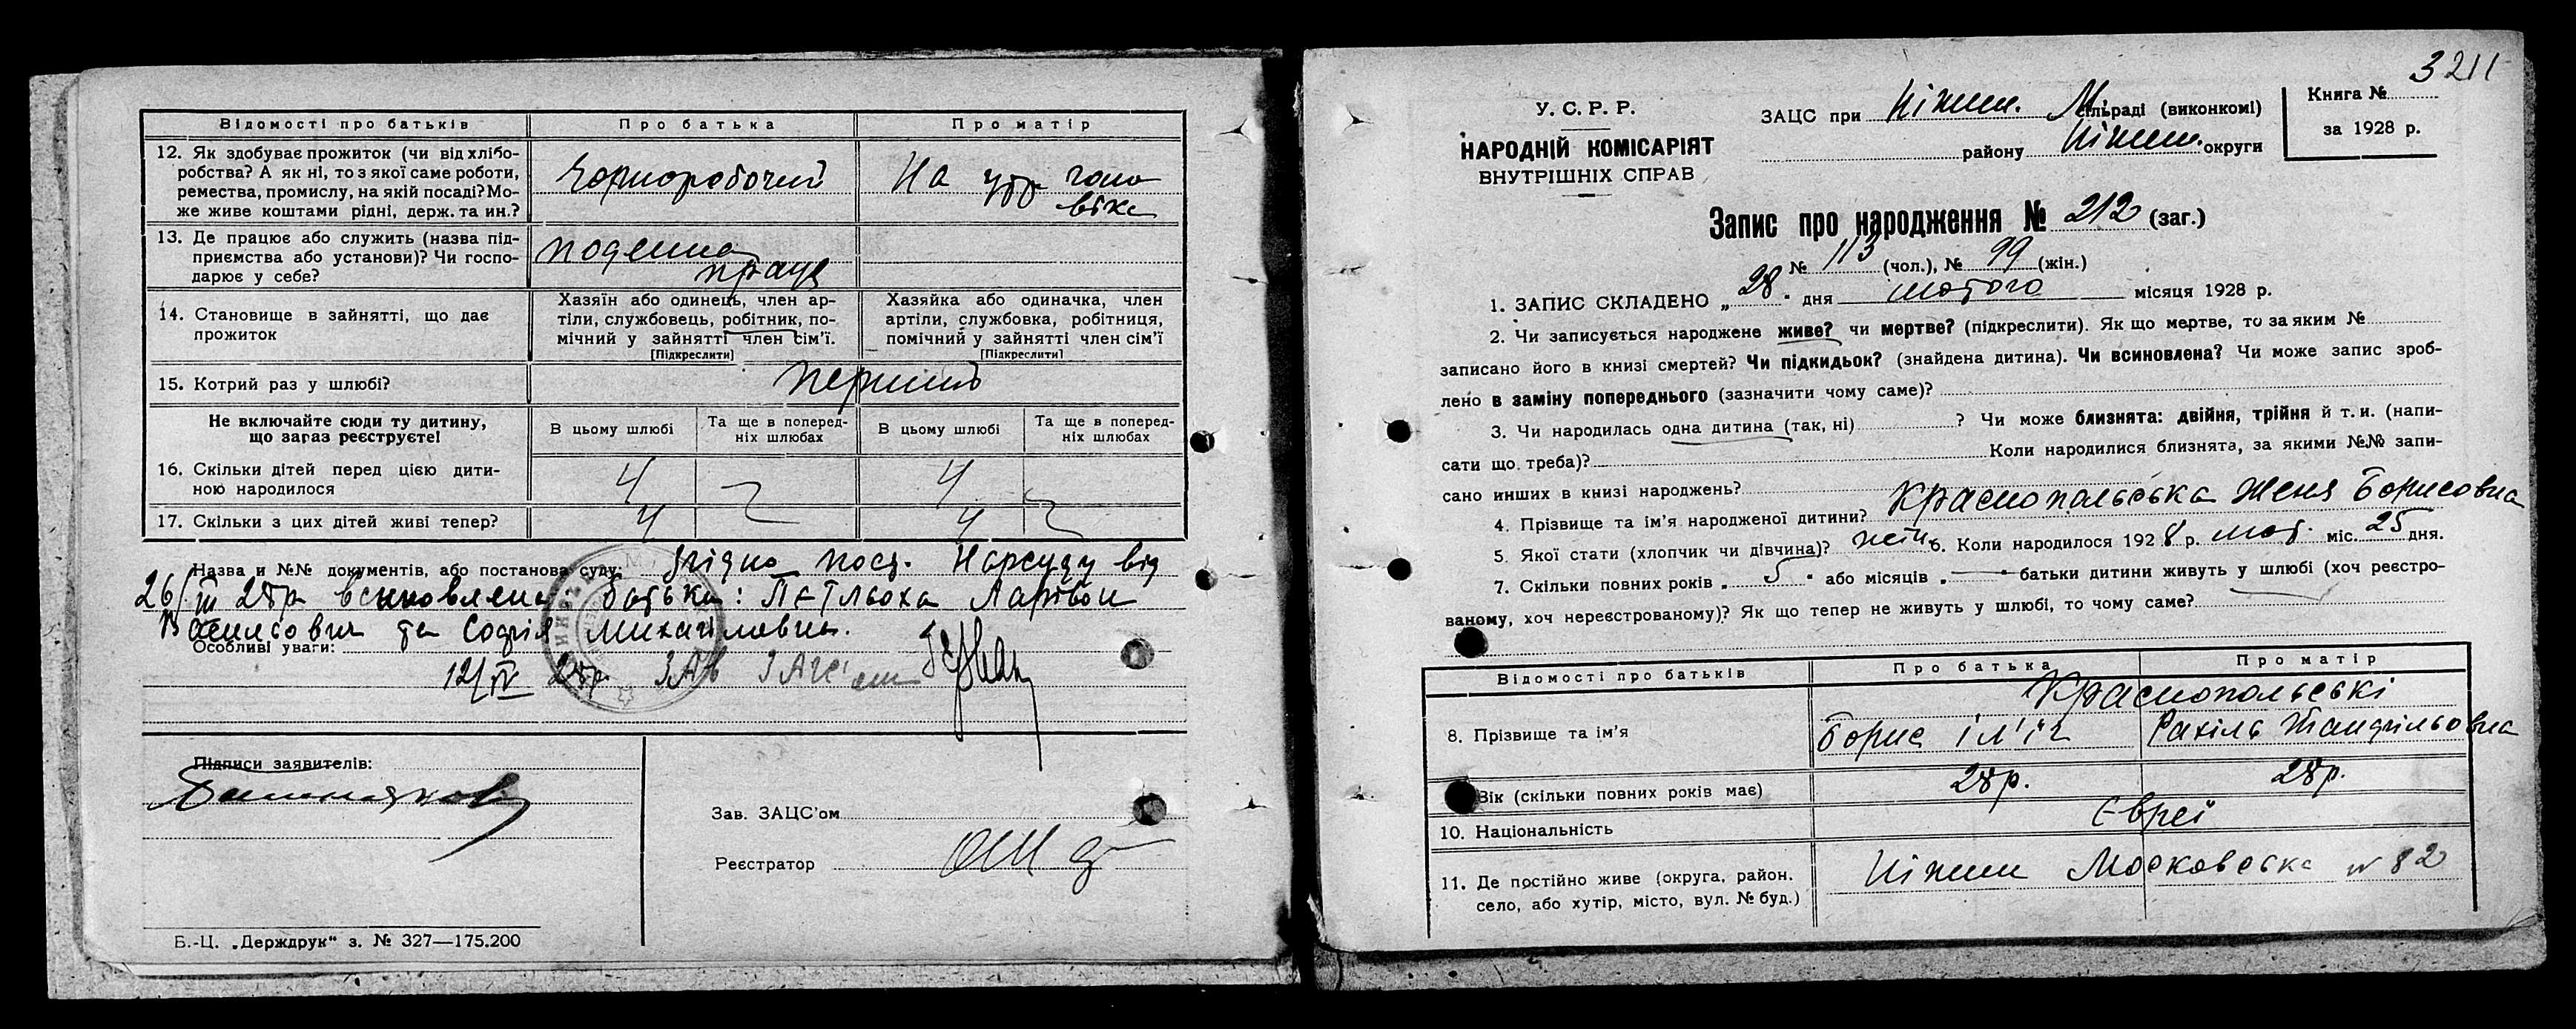 Відомості про батьків Про батька Про матір
12. Як здобуває прожиток (чи від хлібо-
робства? А як ні, то з якої саме роботи,
ремества, промислу, на якій посаді? Мо-
же живе коштами рідні, держ. та ин.?
Чорноробочий
На утр чоло
віка
13. Де працює або служить (назва під-
приємства або установи)? Чи госпо-
дарює у себе?
поденна
праця
14. Становище в зайнятті, що дає
прожиток
Хазяїн або одинець, член ар-
тіли, службовець, робітник, по-
мічний у зайнятті член сім'ї.
[Підкреслити]
Хазяйка або одиначка, член
артіли, службовка, робітниця,
помічний у зайнятті член сім'ї
[Підкреслити]
15. Котрий раз у шлюбі?
Не включайте сюди ту дитину,
що зараз реєструєте!
В цьому шлюбі
Та ще в поперед-
ніх шлюбах
В цьому шлюбі
Та ще в поперед-
ніх шлюбах
16. Скільки дітей перед цією дити-
ною народилося
4 4
17. Скільки з цих дітей живі тепер?
4 4
Назва и №№ документів, або постанова суду: Згідно пост. Нарсуду від
26/III 28р всиновлена батьки: Петльоха Ларівон
Васильович та Софія Михайловна.
Особливі уваги:
12/IV 28р. ЗАВ ЗАГС'ом
Підписи заявителів:
Зав. ЗАЦС'ом
Реєстратор
Б.-Ц. „Держдрук“ з. № 327—175.200
3211
У. С. Р. Р.
НАРОДНІЙ КОМІСАРІЯТ
ВНУТРІШНІХ СПРАВ
ЗАЦС при Ніжин. М. сільраді (виконкомі)
району Ніжин. округи
Книга №
за 1928 р.
Запис про народження № 212 (заг.)
№ 113 (чол.), № 99 (жін.)
1. ЗАПИС СКЛАДЕНО „28“ дня лютого місяця 1928 р.
2. Чи записується народжене живе? чи мертве? (підкреслити). Як що мертве, то за яким №
записано його в книзі смертей? Чи підкидьок? (знайдена дитина). Чи всиновлена? Чи може запис зроб-
лено в заміну попереднього (зазначити чому саме)?
3. Чи народилась одна дитина (так, ні) ? Чи може близнята: двійня, трійня й т. и. (напи-
сати що треба)? Коли народилися близнята, за якими №№ запи-
сано инших в книзі народжень?
4. Прізвище та ім'я народженої дитини? Краснопольська Женя Борисовна
5. Якої стати (хлопчик чи дівчина)? жін. 6. Коли народилося 1928 р. лют. міс. 25 дня.
7. Скільки повних років „5“ або місяців „—“ батьки дитини живуть у шлюбі (хоч реєстро-
ваному, хоч нереєстрованому)? Як що тепер не живуть у шлюбі, то чому саме?
Відомості про батьків Про батька Про матір
Краснопольські
8. Прізвище та ім'я Борис Іл'їч Рахіль
Вік (скільки повних років має) 28р. 28р.
10. Національність Євреї
11. Де постійно живе (округа, район.
село, або хутір, місто, вул. № буд.)
Ніжин Московська № 82